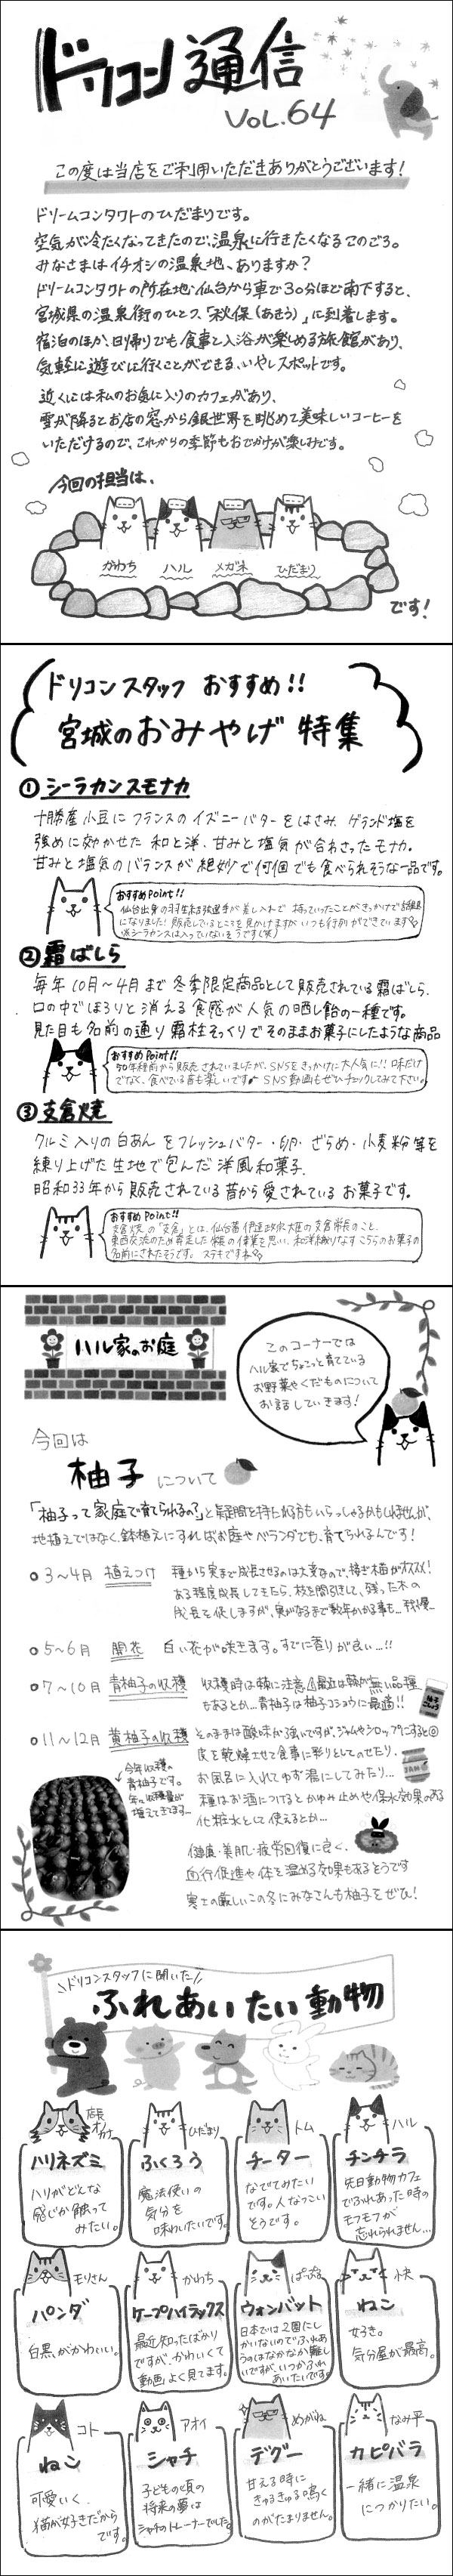 ドリコン通信
VOL.64
この度は当店をご利用いただきありがとうございます!
ドリームコンタクトのひだまりです。
空気が冷たくなってきたので、温泉に行きたくなるこのごろ。
みなさまはイチオシの温泉地、ありますか?
ドリームコンタクトの所在地・仙台から車で30分ほど南下すると、
宮城県の温泉街のひとつ、「秋保(あきう)」に到着します。
宿泊のほか、日帰りでも食事と入浴が楽しめる旅館があり、
気軽に遊びに行くことができる、いやしスポットです。
近くには私のお気に入りのカフェがあり、
雪が降るとお店の窓から銀世界を眺めて美味しいコーヒーを
いただけるので、これからの季節もおでかけが楽しみです。
今回の担当は、
かわち ハル メガネ ひだまり
です!
ドリコンスタッフ おすすめ!!
宮城のおみやげ 特集
① シーラカンスモナカ
十勝産小豆にフランスのイズニーバターをはさみ、ゲランド塩を
強めに効かせた 和と洋、甘みと塩気が合わさったモナカ。
甘みと塩気のバランスが絶妙で何個でも食べられそうな一品です。
おすすめPoint!!
仙台出身の羽生結弦選手が差し入れで持っていったことがきっかけで話題
になりました!販売しているところを見かけますがいつも行列ができています
(※シーラカンスは入っていないそうです(笑)
② 霜ばしら
毎年10月~4月まで冬季限定商品として販売されている霜ばしら。
口の中でほろりと消える食感が人気の晒し飴の一種です。
見た目も名前の通り霜柱そっくりでそのままお菓子にしたような商品
おすすめPoint!!
50年程前から販売されていましたが、SNSをきっかけに大人気に!!味だけ
でなく、食べている音も楽しいです♪SNS動画もぜひチェックしてみて下さい。
③ 支倉焼
クルミ入りの白あんをフレッシュバター・卵・ざらめ・小麦粉等を
練り上げた生地で包んだ洋風和菓子。
昭和33年から販売されている昔から愛されているお菓子です。
おすすめPoint!!
支倉焼の"支倉"とは、仙台藩伊達政宗の家臣の支倉常長のこと。
名前にされたそうです。ステキですね
ハル家のお庭
このコーナーでは
ハル家でちょこっと育てている
お野菜やくだものについて
お話していきます!
今回は
柚子について
「柚子って家庭で育てられるの?」と疑問を持たれる方もいらっしゃるかもしれませんが、
地植えではなく、鉢植えにすればお庭やベランダでも、育てられるんです!
○3~4月 植えつけ 種から実まで成長させるのは大変なので、接ぎ木苗がオススメ!
ある程度成長してきたら、枝を間引きして、残った木の
成長を促しますが、実がなるまで数年かかる事も…我慢…
○5~6月 開花 白い花が咲きます。すでに香りが良い…!!
○7~10月 青柚子の収穫 収穫時は棘に注意⚠最近は棘が無い品種
もあるとか…青柚子は柚子コショウに最適!!
柚子こしょう
○11~12月 黄柚子の収穫 そのままは酸味が強いですが、ジャムやシロップにすると◎
皮を乾燥させて食事に彩りとしてのせたり、
お風呂に入れてゆず湯にしてみたり…
JAM
種はお酒につけるとかゆみ止めや保水効果のある
化粧水として使えるとか…
今年収穫の
青柚子です。
年々収穫量が
増えてきてます…
健康・美肌・疲労回復に良く、
血行促進や体を温める効果もあるそうです
寒さの厳しいこの冬にみなさんも柚子をぜひ!
ドリコンスタッフに聞いた
ふれあいたい動物
店長オカナ
ハリネズミ
ハリがどんな
感じか触って
みたい。
ひだまり
ふくろう
魔法使いの
気分を
味わいたいです。
トム
チーター
なでてみたい
です。人なつこい
そうです。
ハル
チンチラ
先日動物カフェ
でふれあった時の
モフモフが
忘れられません…
モリさん
パンダ
白黒がかわいい。
かわち
ケープハイラックス
最近知ったばかり
ですが、かわいくて
動画よく見てます。
ぱぱお
ウォンバット
日本では2園にし
かいないのでふれあ
うのはなかなか難し
いですが、いつかふれ
あいたいです。
快
ねこ
女好き。
気分屋が最高。
コト
ねこ
可愛いく、
猫が好きだから
です。
アオイ
シャチ
子どもの頃の
将来の夢は
シャチのトレーナーでした。
めがね
デグー
甘える時に
きゅるきゅる鳴く
のがたまりません。
なみ平
カピバラ
一緒に温泉
につかりたい。